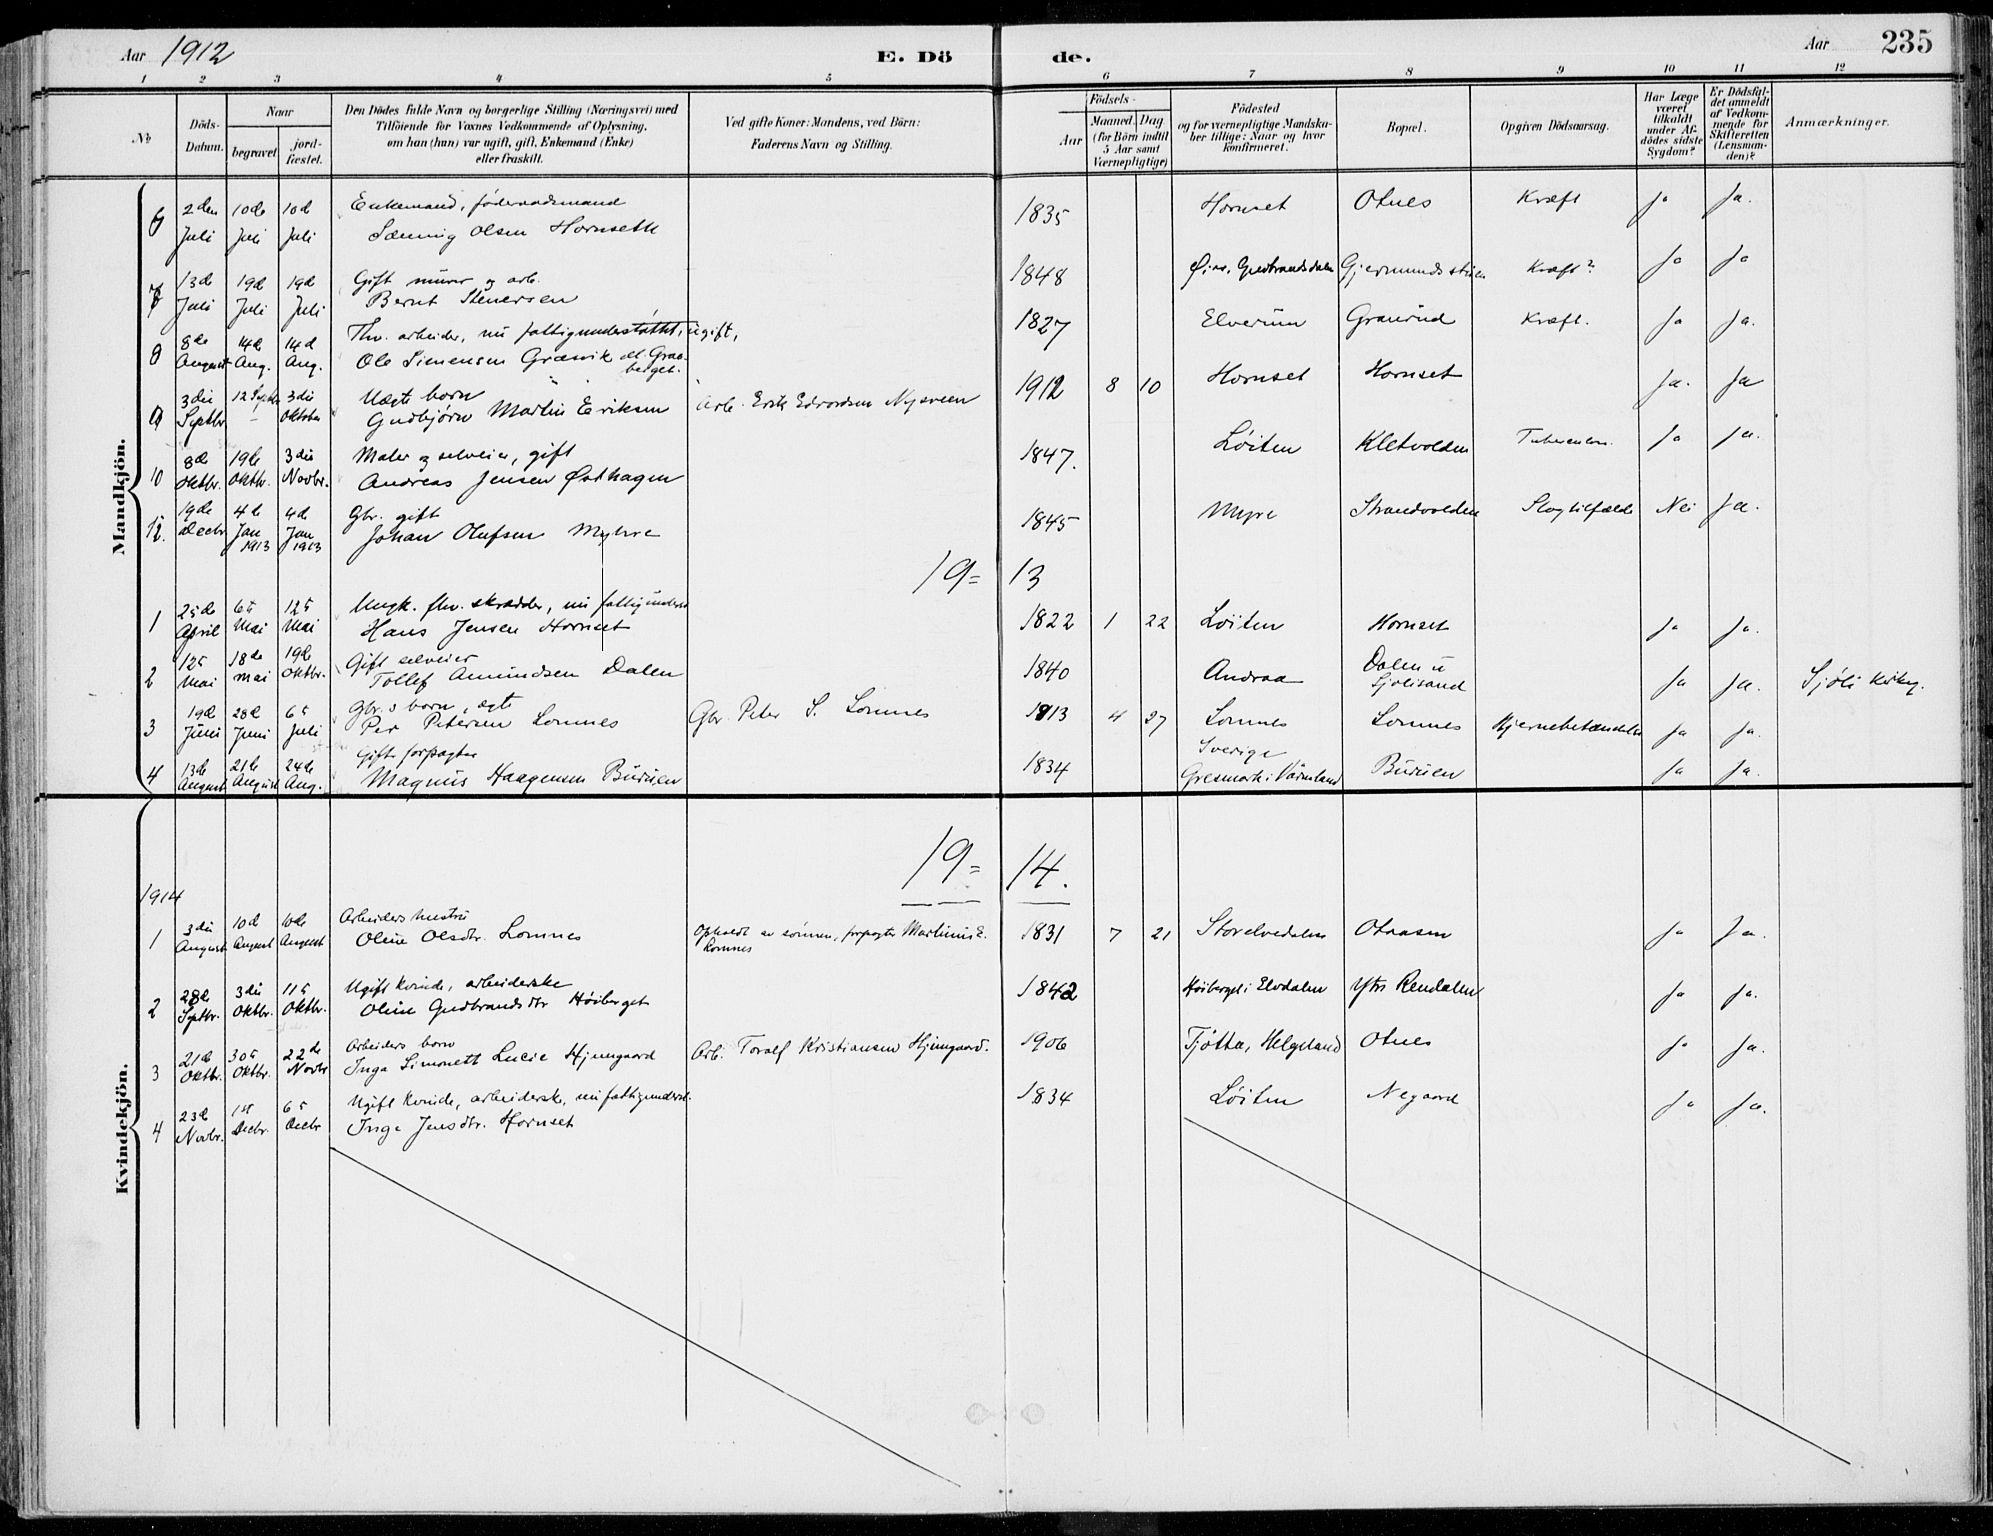 Aar 1912
E. Dö
de.
Aar
235
1 2 3 4 5 6 7 8 9 10 11 12
No
Döds-
Datum.
Naar
begravet
jord-
fæstet.
Den Dödes fulde Navn og borgerlige Stilling (Næringsvei) med
Tilföiende for Voxnes Vedkommende af Oplysning,
om han (hun) var ugift, gift, Enkemand (Enke)
eller fraskilt.
Ved gifte Koner: Mandens, ved Börn:
Faderens Navn og Stilling.
Födsels-
Aar
Maaned. Dag
(for Börn indtil
5 Aar samt
Værnepligtige)
Födested
og for værnepligtige Mandska-
ber tillige: Naar og hvor
konfirmeret.
Bopæl.
Opgiven Dödsaarsag.
Har Læge
været
tilkaldt
under Af-
dödes sidste
Sygdom?
Er Dödsfal-
det anmeldt
af Vedkom-
mende for
Skifteretten
(Lensman-
den)?
Anmærkninger.
Mandkjön.
6 2den Juli 10de Juli 10d Juli Enkemand, föderaadsmand
Olsen Hornseth 1835 Hornset Otnes Kræft Ja Ja.
7 13de Juli 19d Juli 19d Juli Gift murer og arb.
Bernt Stenersen 1848 Gudbrandsdalen Gjermundstuen Kræft? Ja Ja
8 8de August 14de Aug. 14d Aug. Fhv. arbeider, nu fattigunderstøttet, ugift,
Ole Simensen Græsvik 1827 Elverum Granrud Kræft. Ja Ja.
9 3die Septbr. 12 Septbr 3die Oktober Uægt barn
Gudbjörn Martin Eriksen Arb. Erik Edvardsen Nysveen 1912 8 10 Hornset Hornset Ja. Ja
10 8de Oktbr. 19de Oktbr. 3die Novbr. Maler og selveier, gift
Andreas Jensen Østhagen 1847. Løiten Kletvolden Ja Ja.
12. 19de Decbr 4de Jan 1913 4de Jan 1913 Gbr. gift
Johan Olufsen Myhre 1845 Myre Strandvolden Slagtilfælde Nei Ja.
19= 13
1 25de April 6te Mai 12te Mai Ungk. fhv. skrædder, nu fattigunderst
Hans Jensen Hornset 1822 1 22 Løiten Hornset Ja Ja.
2 12te Mai 18de Mai 19de Oktbr. Gift selveier
Tollef Amundsen Dalen 1840 Andraa Dalen u Sjølisand Ja Ja. Sjøli
3 19de Juni 28de Juni 6te Juli Gbr.s barn, ægte
Per Petersen Lomnes Gbr. Peter S. Lomnes 1913 4 27 Lomnes Lomnes Hjernebetændelse Ja Ja.
4 13de August 21de August 24de Aug. Gift forpagter
Magnus Haagensen Buruen 1834 Sverige
Gresmark i Värmland Buruen Ja Ja.
19= 14.
Kvindekjön.
1914
1 3die August 10d August 10de August Arbeiders hustru
Oline Olsdtr. Lomnes Opholdt av sönnen, forpagter Martinius E.
Lomnes 1831 7 21 Storelvedalen Otaasen Ja Ja.
2 28de Septbr. 3die Oktbr. 11te Oktbr. Ugift Kvinde, arbeiderske
Oline Gudbrandsdtr Høiberget 1842 Høiberget i Elvdalen Ytre Rendalen Ja Ja.
3 21de Oktbr. 30te Oktbr. 22de Novbr Arbeiders barn
Inga Simonett Lucie Hjemgaard Arb. Toralf Kristiansen Hjemgaard. 1906 Tjötta, Helgeland Otnes Ja Ja.
4 23de Novbr. 1ste Decbr. 6te Decbr Ugift Kvinde, arbeiderske, nu fattigunderst.
Inga Jensdtr. Hornset 1834 Løiten Negaard Ja Ja.